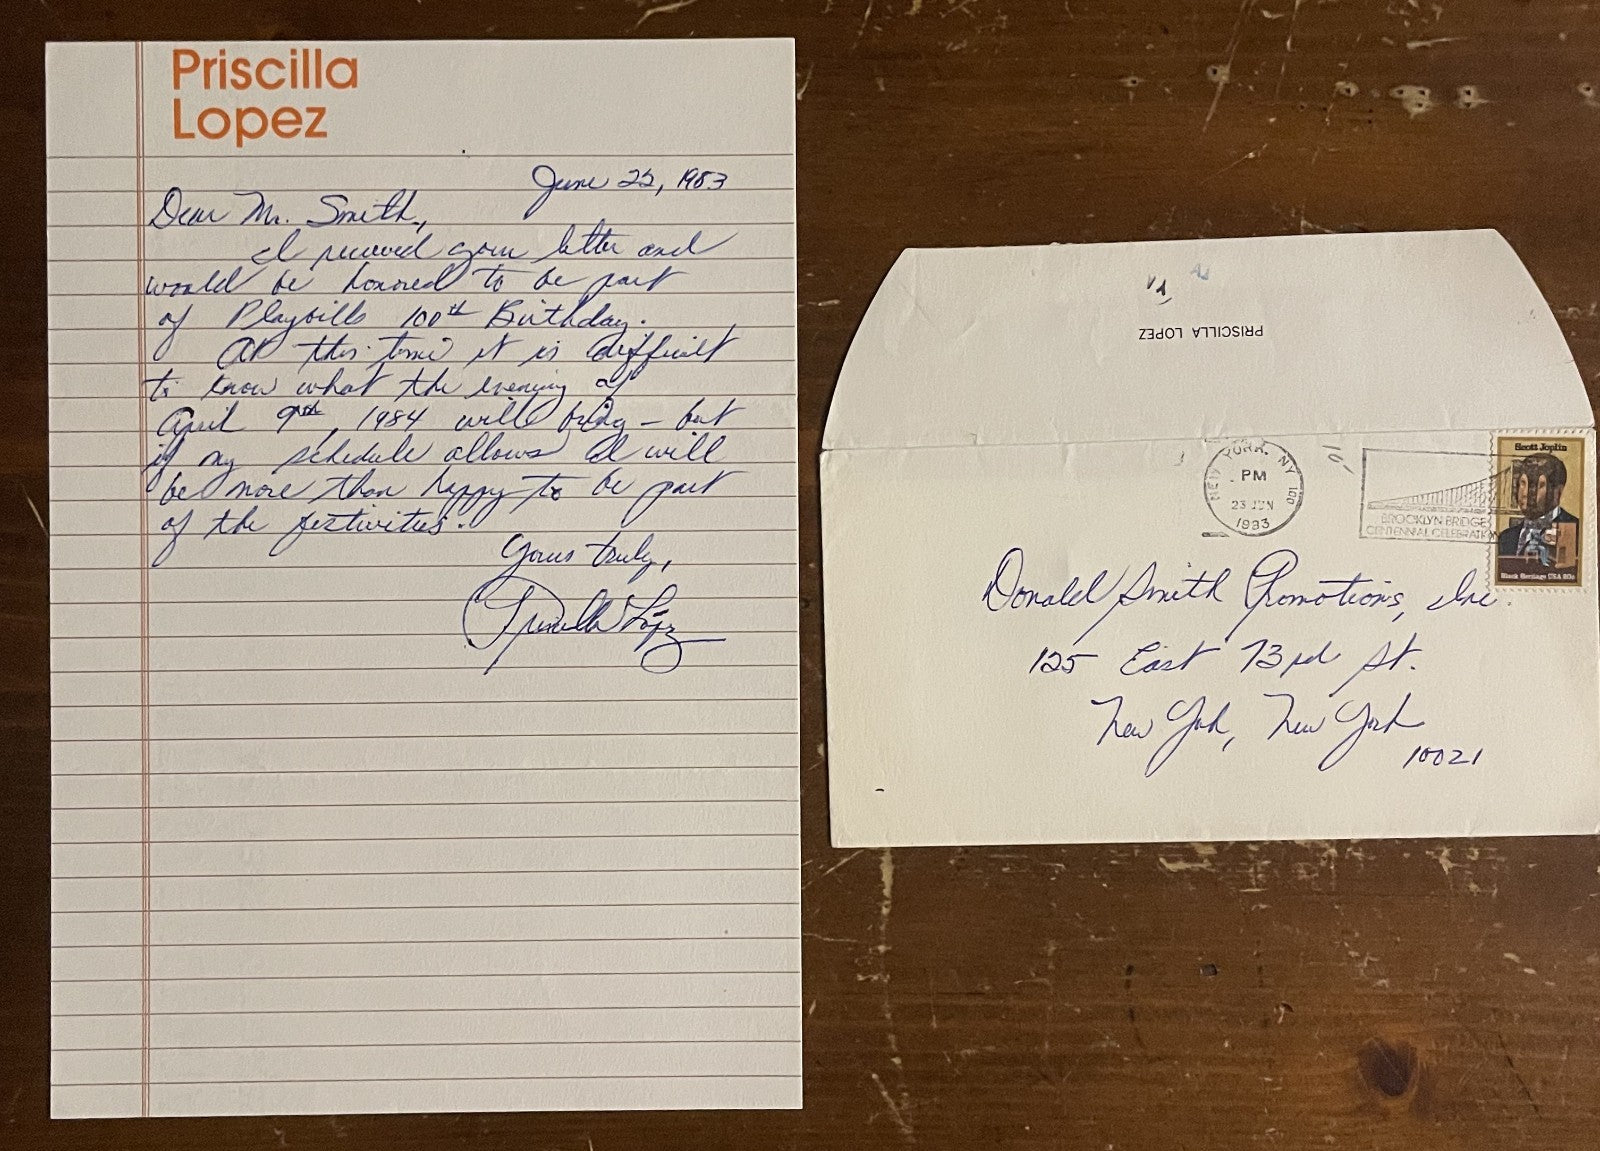 Priscilla
Lopez
June 22, 1983
Dear Mr. Smith,
I received your letter and
would be honored to be part
of Playbills 100th Birthday.
At this time it is difficult
to know what the evening of
April 9th, 1984 will bring - but
if my schedule allows I will
be more than happy to be part
of the festivities.
Yours truly,
Priscilla Lopez
PRISCILLA LOPEZ
NEW YORK, NY 100
PM
23 JUN
1983
BROOKLYN BRIDGE
CENTENNIAL CELEBRATION
Scott Joplin
Black Heritage USA 20c
Donald Smith Promotions, Inc.
125 East 73rd St.
New York, New York
10021